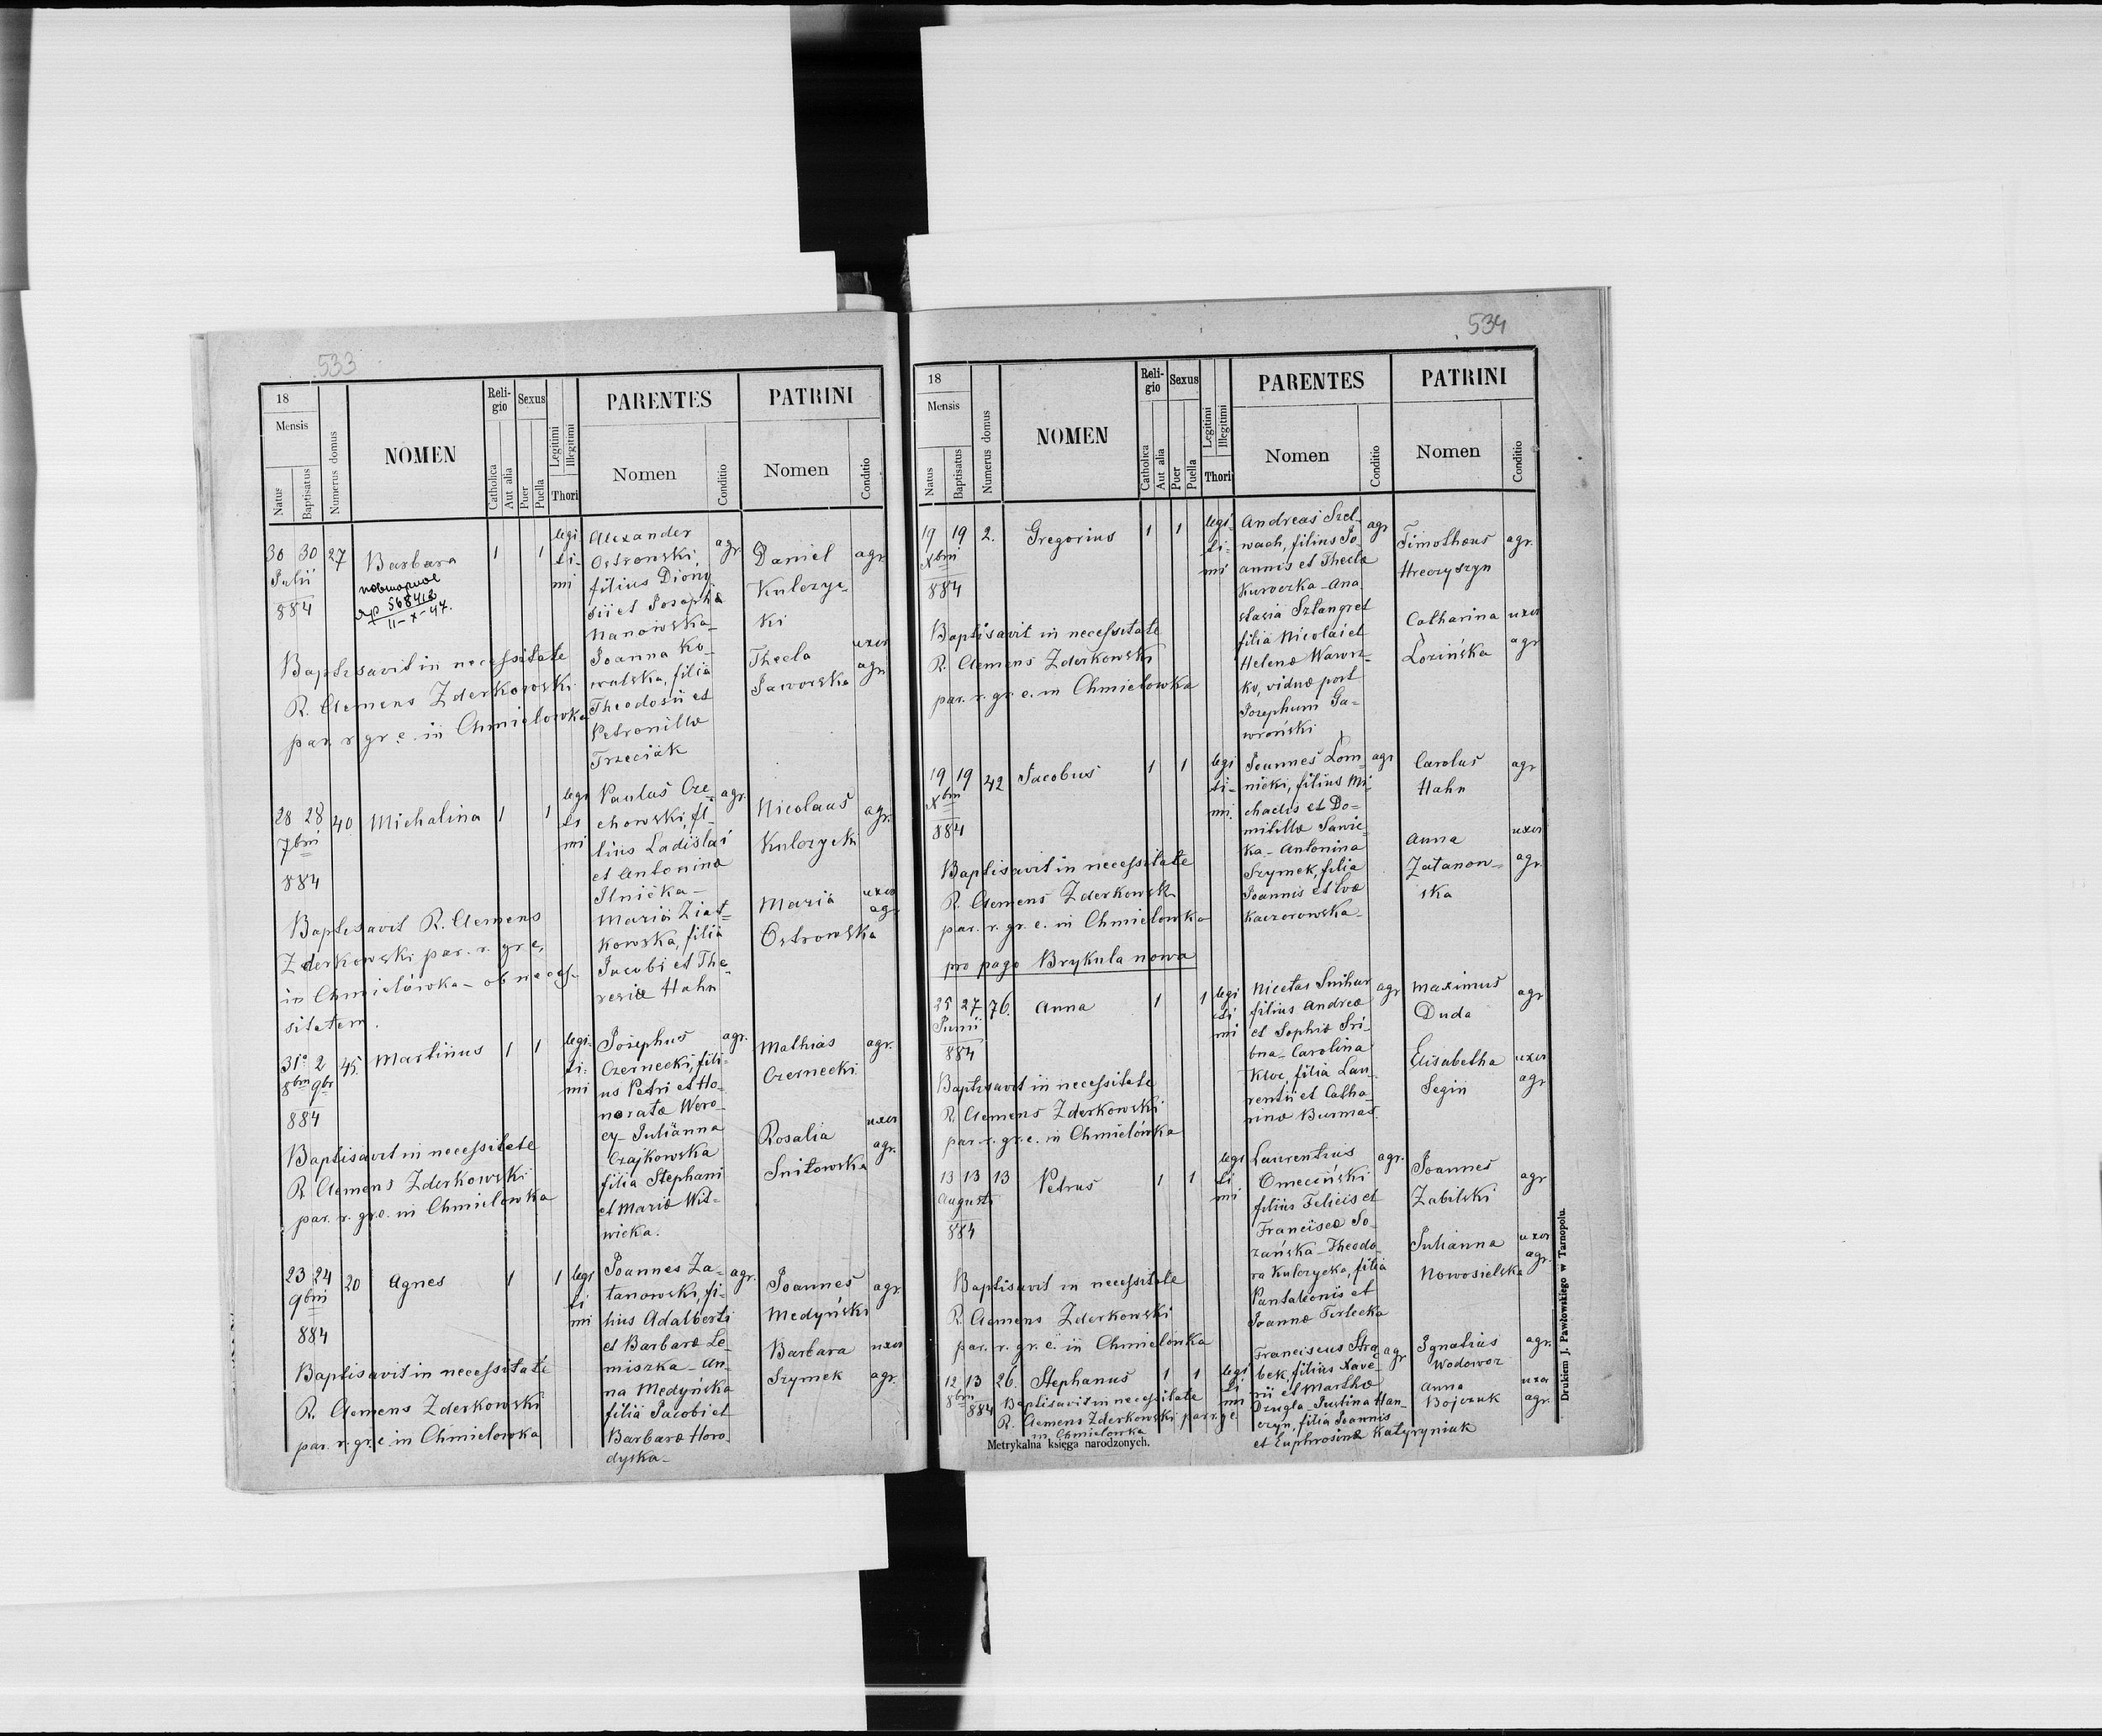 533
18
Mensis
Natus
Baptisatus
Numerus domus
NOMEN
Reli-
gio
Catholica
Aut alia
Sexus
Puer
Puella
Legitimi
Illegitimi
Thori
PARENTES
Nomen
Conditio
PATRINI
Nomen
Conditio
30 30 27 Barbara 1 1
Julii
884
повторное
568412
11-X-47.
legi
ti-
mi
Alexander
Ostrowski,
filius Diony-
sii et Josephæ
Manowska-
Joanna Ko-
walska, filia
Theodosii et
Petronillæ
Trzeciak
agr.
Daniel
Kulczyc-
ki
agr.
Thecla
Jaworska
uxor
agr.
Baptisavit in necessitate
R. Clemens Zderkowski
par. r. gr. c. in Chmielowka
28 28 40 Michalina 1 1
7bris
884
legi
ti
mi
Paulus Cze-
chowski, fi-
lius Ladislai
et Antoninæ
Ilnicka-
Maria Ziat-
kowska, filia
Jacobi et The-
resiæ Hahn
agr.
Nicolaus
Kulczycki
agr.
Maria
Ostrowska
uxor
agr.
Baptisavit R. Clemens
Zderkowski par. r. gr. c.
in Chmielówka - ob neces-
sitatem.
31 2 45. Martinus 1 1
8bris 9br
884
legi-
ti-
mi
Josephus
Czernecki, fili-
us Petri et Ho-
noratæ Woro-
cy- Julianna
Czajkowska
filia Stephani
et Mariæ Wit-
wicka.
agr.
Mathias
Czernecki
agr.
Rosalia
Snitowska
uxor
agr.
Baptisavit in necessitate
R. Clemens Zderkowski
par. r. gr. c. in Chmielowka
23 24 20 Agnes 1 1
9bris
884
legi
ti
mi
Joannes Za-
tanowski, fi-
lius Adalberti
et Barbaræ Le-
miszka - An-
na Medyńska
filia Jacobi et
Barbaræ Horo-
dyska-
agr.
Joannes
Medyński
agr.
Barbara
Szymek
uxor
agr.
Baptisavit in necessitate
R. Clemens Zderkowski
par. r. gr. c. in Chmielowka
534
18
Mensis
Natus
Baptisatus
Numerus domus
NOMEN
Reli-
gio
Catholica
Aut alia
Sexus
Puer
Puella
Legitimi
Illegitimi
Thori
PARENTES
Nomen
Conditio
PATRINI
Nomen
Conditio
19 19 2. Gregorius 1 1
Xbris
884
legi-
ti-
mi
Andreas Szel-
wach, filius Jo-
annis et Theclæ
Kuroczka - Ana-
stasia Sztangret
filia Nicolai et
Helenæ Wawrz-
ko, viduæ post
Josephum Ga-
wroński
agr
Timotheus
Hreczyszyn
agr.
Catharina
Łozińska
uxor
agr
Baptisavit in necessitate
R. Clemens Zderkowski
par. r. gr. c. in Chmielowka
19 19 42 Jacobus 1 1
Xbris
884
legi
ti-
mi.
Joannes Łom-
nicki, filius Mi-
chaelis et Do-
mitillæ Sawic-
ka - Antonina
Szymek, filia
Joannis et Evæ
Kaczorowska-
agr
Carolus
Hahn
agr
Anna
Zatanow-
ska
uxor
agr.
Baptisavit in necessitate
R. Clemens Zderkowski
par. r. gr. c. in Chmielowka
pro pago Brykula nowa
25 27 76. Anna 1 1
Junii
884
legi
ti
mi
Nicetas Snihur
filius Andreæ
et Sophiæ Sri-
bna - Carolina
Kloc, filia Lau-
rentii et Catha-
rinæ Burmas.
agr
Maximus
Duda
agr
Elisabetha
Segin
uxor
agr
Baptisavit in necessitate
R. Clemens Zderkowski
par. r. gr. c. in Chmielówka
13 13 13 Petrus 1 1
Augusti
884
legi
ti
mi
Laurentius
Omeciński
filius Felicis et
Franciscæ So-
zańska - Theodo-
ra Kulczycka, filia
Pantaleonis et
Joannæ Terlecka
agr.
Joannes
Zabilski
agr
Julianna
Nowosielska
uxor
agr.
Baptisavit in necessitate
R. Clemens Zderkowski
par. r. gr. c. in Chmielówka
12 13 26. Stephanus 1 1
8bris 884
legi
ti
mi
Franciscus Stra-
bek, filius Xave-
rii et Marthæ
Dzugla - Justina Han-
czyn, filia Joannis
et Euphrosinæ Katyryniuk
agr
Ignatius
Wodowoz
agr.
Anna
Bojczuk
uxor
agr.
Baptisavit in necessitate
R. Clemens Zderkowski par r. g. c
in Chmielowka
Metrykalna księga narodzonych.
Drukiem J. Pawłowskiego w Tarnopolu.